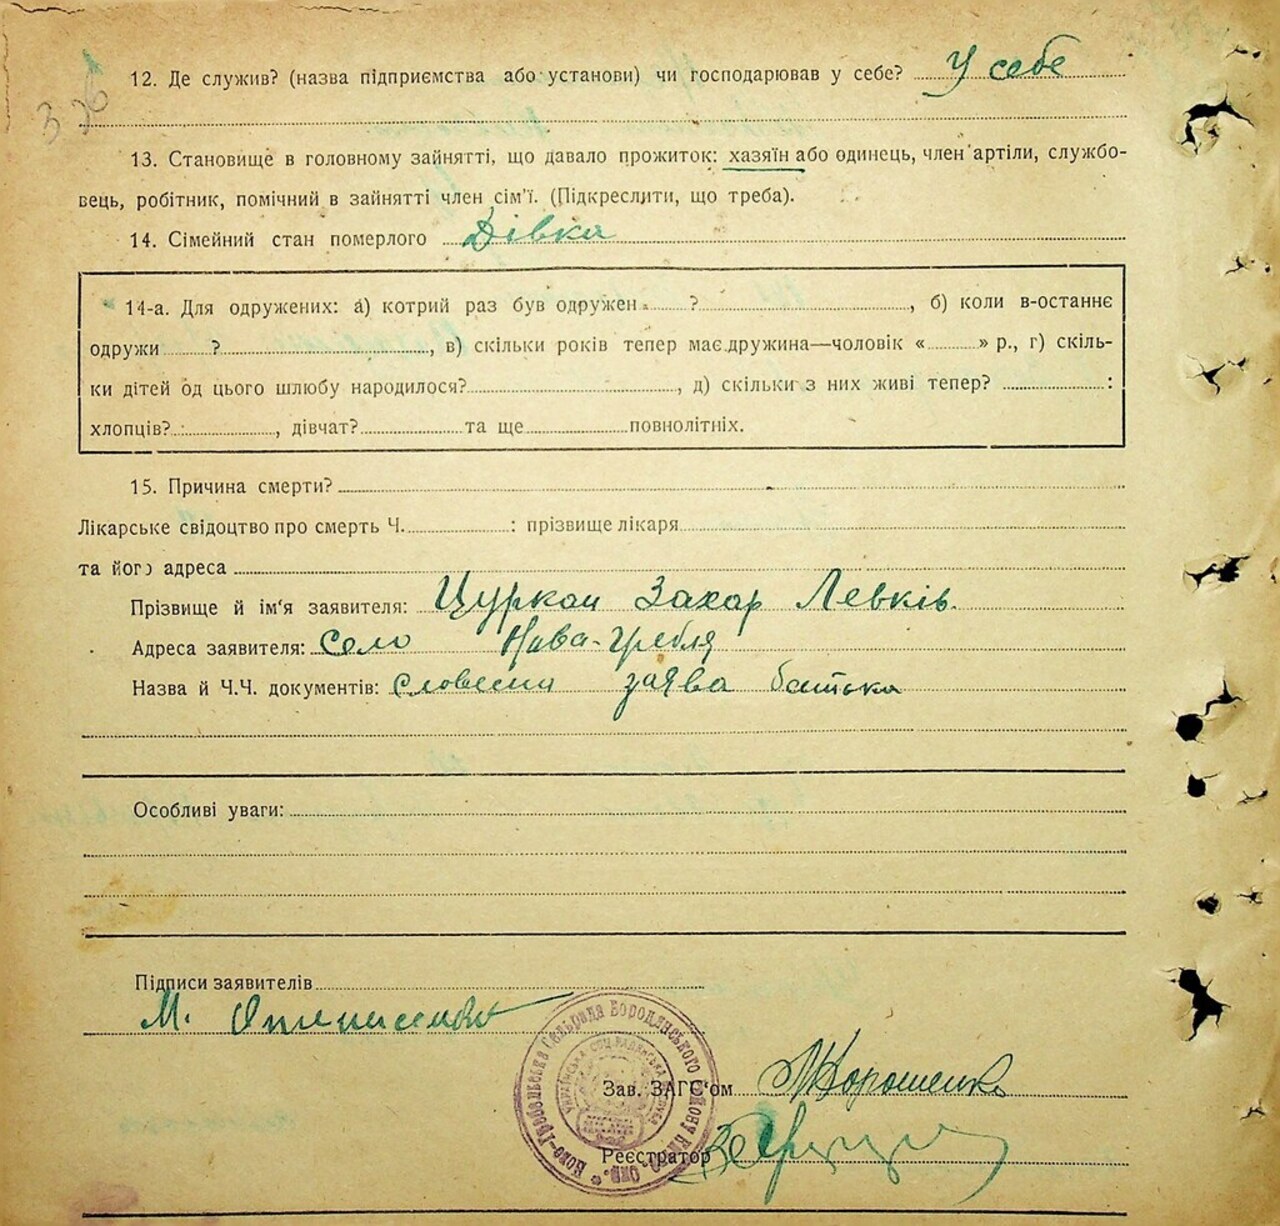 336
12. Де служив? (назва підприємства або установи) чи господарював у себе? У себе
13. Становище в головному зайнятті, що давало прожиток: хазяїн або одинець, член артіли, службо-
вець, робітник, помічний в зайнятті член сім'ї. (Підкреслити, що треба).
14. Сімейний стан померлого Дівка
14-а. Для одружених: а) котрий раз був одружен ? , б) коли в-останнє
одружи ? , в) скільки років тепер має дружина—чоловік « » р., г) скіль-
ки дітей од цього шлюбу народилося? , д) скільки з них живі тепер? :
хлопців? , дівчат? та ще повнолітніх.
15. Причина смерти?
Лікарське свідоцтво про смерть Ч. : прізвище лікаря
та його адреса
Прізвище й ім'я заявителя: Цуркан Захар Левків.
Адреса заявителя: Село Нова-Гребля
Назва й Ч.Ч. документів: словесна заява батька
Особливі уваги:
Підписи заявителів
М.
Зав. ЗАГС'ом Дорошенко
Реєстратор
Ново-Гребельська Сельрада Бородянського